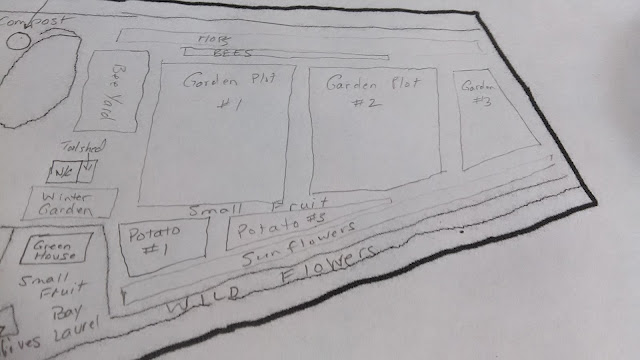 Compost
BEES
Bee
Yard
Garden Plot
#1
Garden Plot
#2
Garden
#3
Toolshed
Winter
Garden
Small Fruit
Potato
#1
Potato
Sunflowers
WILD Flowers
Green
House
Small
Fruit
Bay
Laurel
lives